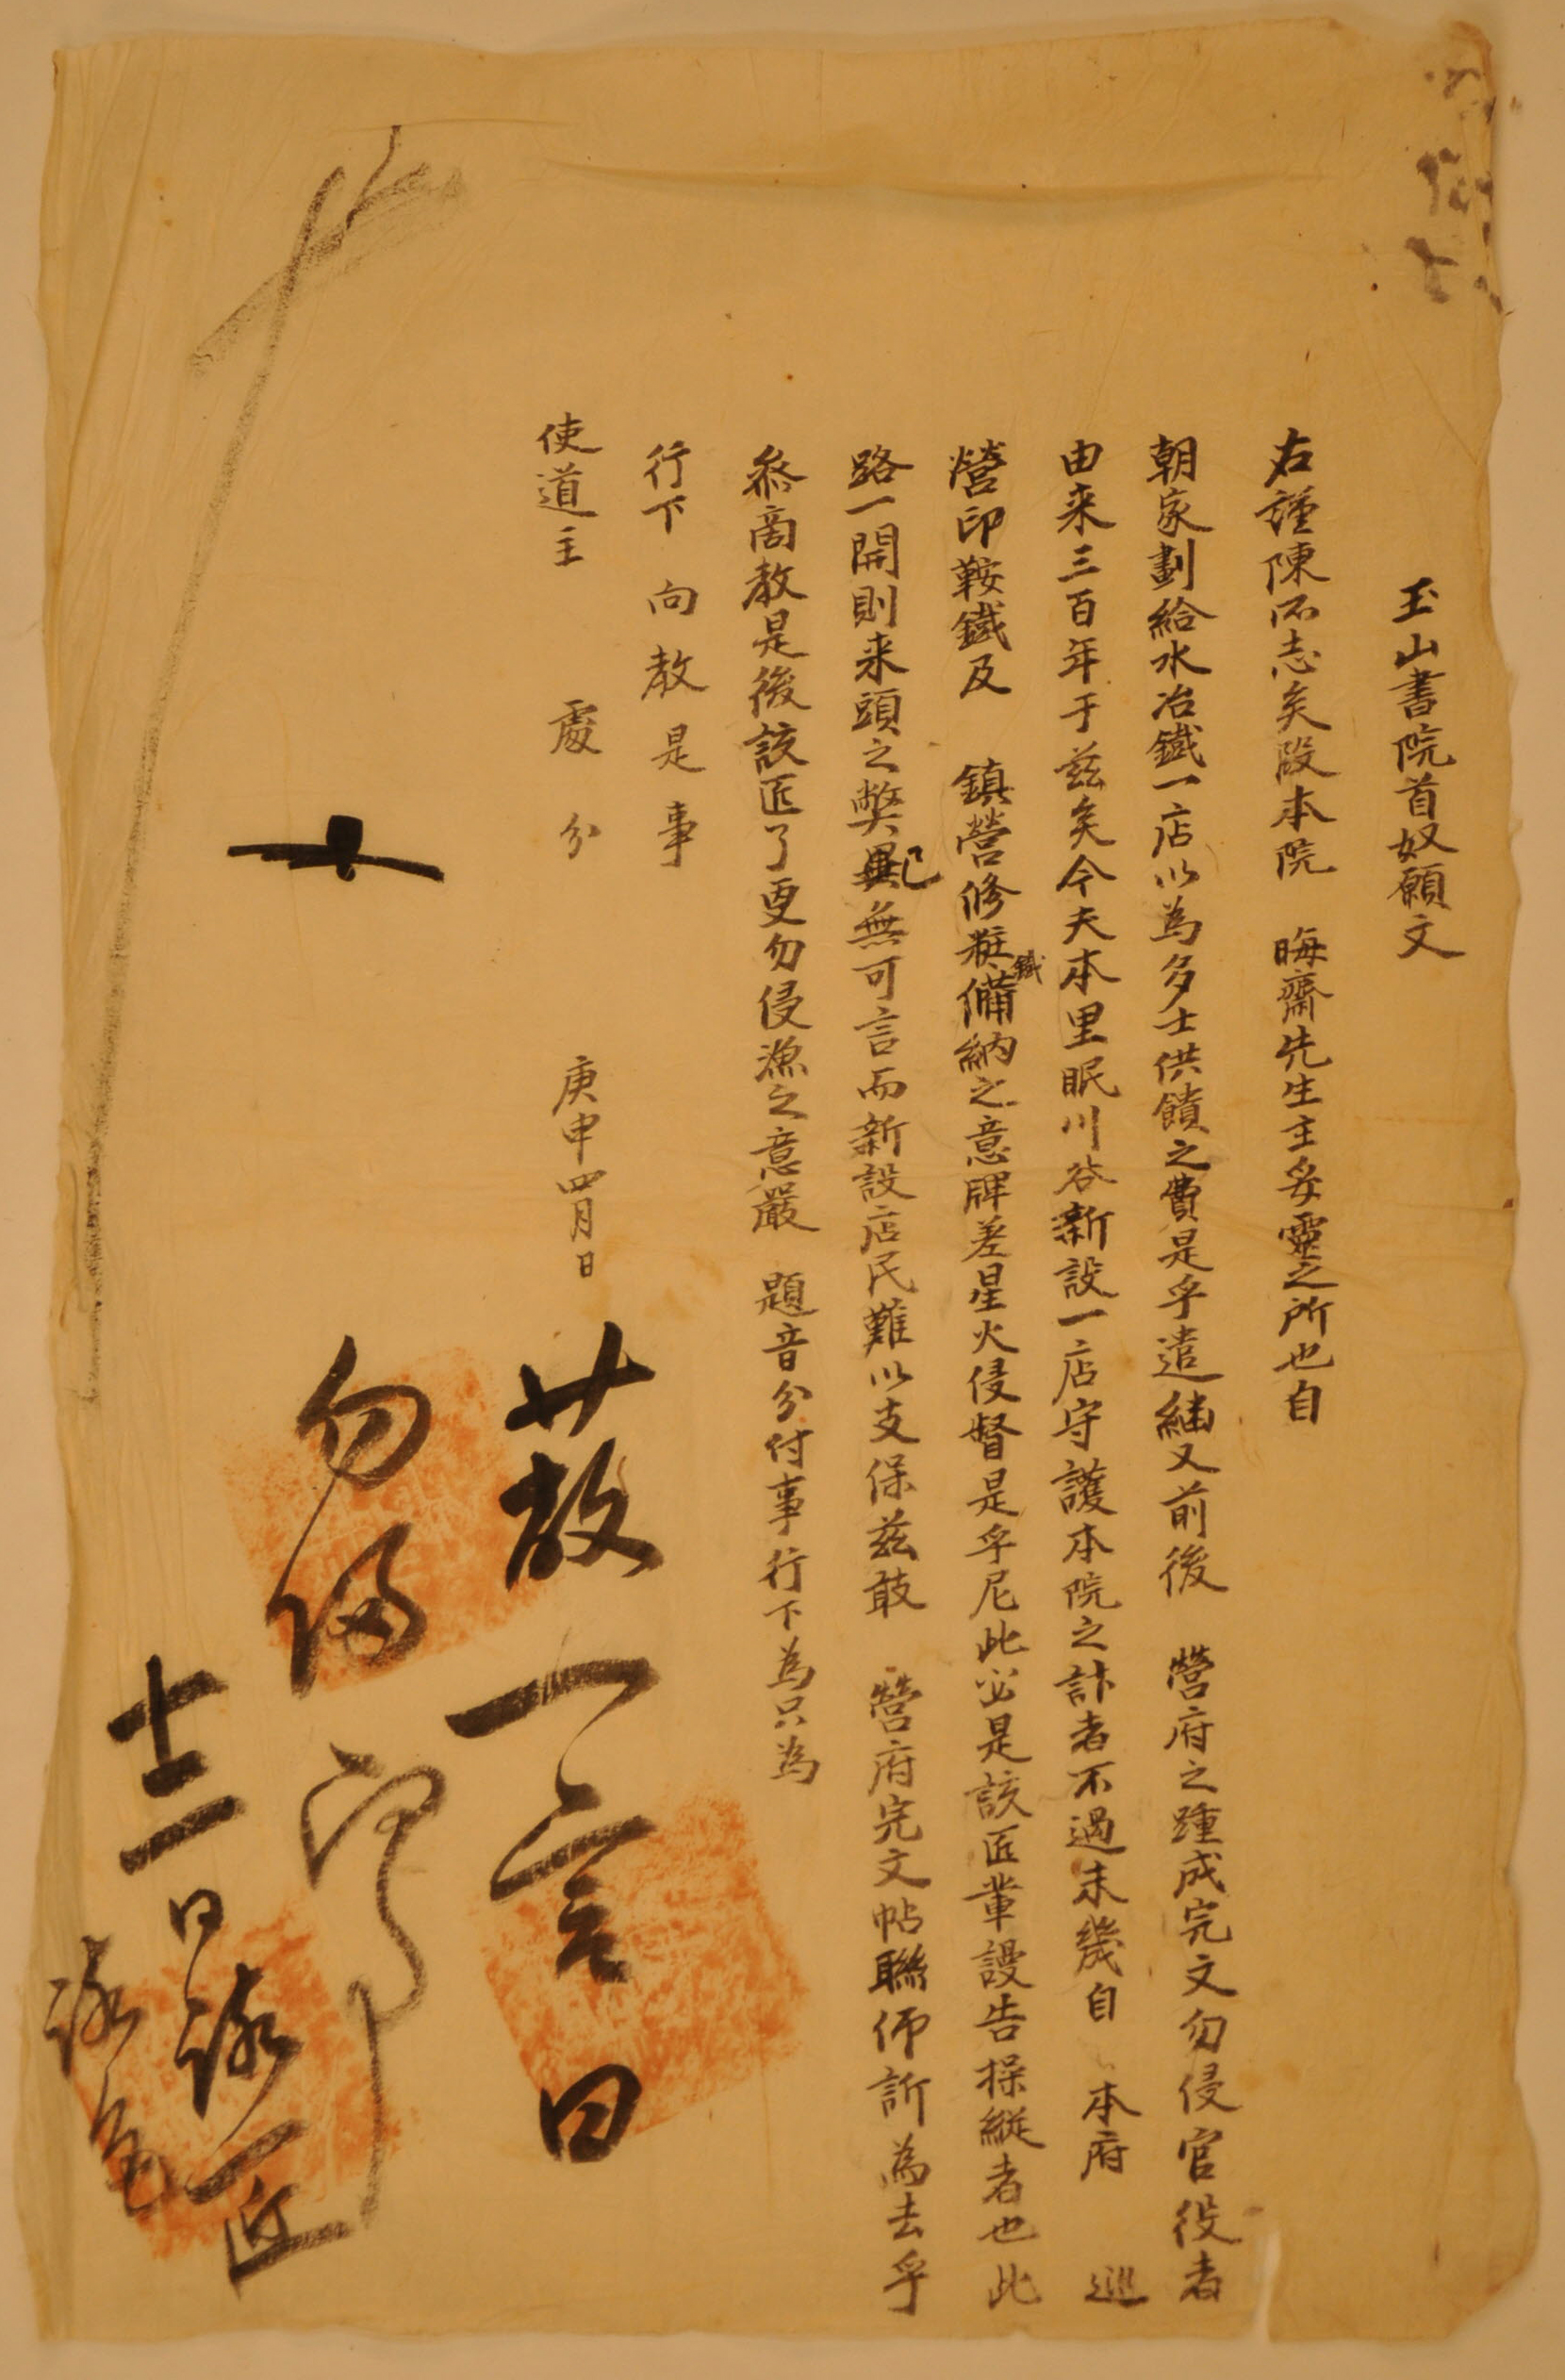 玉山書院首奴願文
右謹陳所志矣段本院 晦齋先生主妥靈之所也自
朝家劃給水冶鐵一店以為多士供饋之費是乎遣 又前後 營府之踵成完文勿侵官役者
由来三百年于茲矣今夫本里眠川谷新設一店守護本院之計者不過未幾自 本府 巡
營印鞍鐵及 鎮營修粧鐵備納之意牌差星火侵督是乎尼此必是該匠輩謾告操縱者也此
路一開則来頭之弊已無可言而新設店民難以支保茲敢 營府完文帖聯仰訴為去乎
叅商教是後該匠了更勿侵漁之意嚴 題音分付事行下為只為
行下向教是事
使道主 處分
庚申四月日
勿侵
十二日